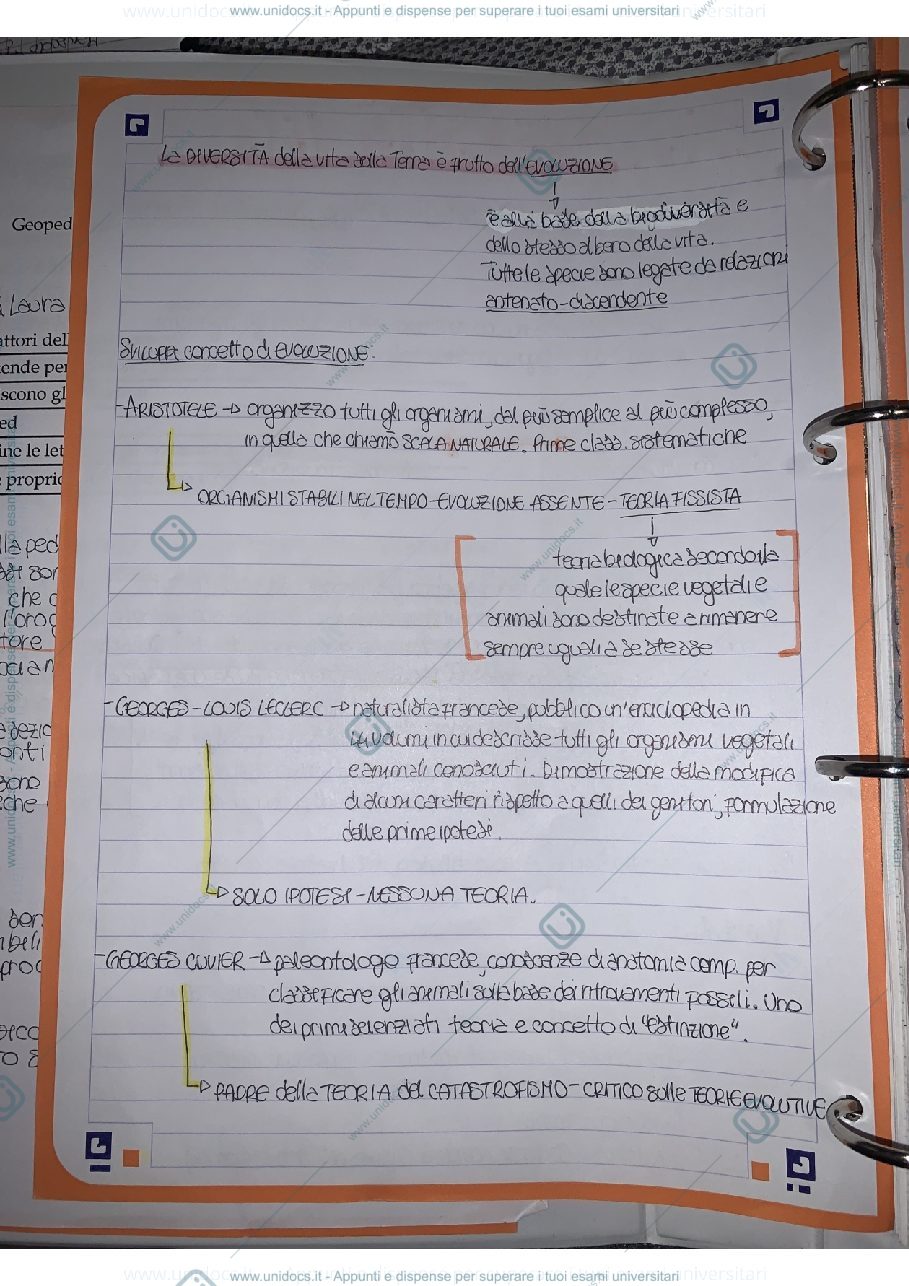 www.unidocs.it - Appunti e dispense per superare i tuoi esami universitari
La DIVERSITÀ della vita sulla Terra è frutto dell'EVOLUZIONE
è alla base della biodiversità e
dello stesso albero della vita.
Tutte le specie sono legate da relazioni
antenato-discendente
SVILUPPI concetto di EVOLUZIONE.
-ARISTOTELE → organizzò tutti gli organismi, dal più semplice al più complesso,
in quella che chiamò SCALA NATURALE. Prime class. sistematiche
ORGANISMI STABILI NEL TEMPO - EVOLUZIONE ASSENTE - TEORIA FISSISTA
teoria biologica secondo la
quale le specie vegetali e
animali sono destinate a rimanere
sempre uguali a se stesse
-GEORGES-LOUIS LECLERC → naturalista francese, pubblicò un'enciclopedia in
volumi in cui descrisse tutti gli organismi vegetali
e animali conosciuti. Dimostrazione della modifica
di alcuni caratteri rispetto a quelli dei genitori, formulazione
delle prime ipotesi.
SOLO IPOTESI - NESSUNA TEORIA.
-GEORGES CUVIER → paleontologo francese, conoscenze di anatomia comp. per
classificare gli animali sulla base dei ritrovamenti fossili. Uno
dei primi scienziati teoria e concetto di "estinzione".
PADRE della TEORIA del CATASTROFISMO - CRITICO sulle TEORIE EVOLUTIVE
Geoped
Laura
attori del
scono gl
ed
propri
che
tore
sono
www.unidocs.it - Appunti e dispense per superare i tuoi esami universitari